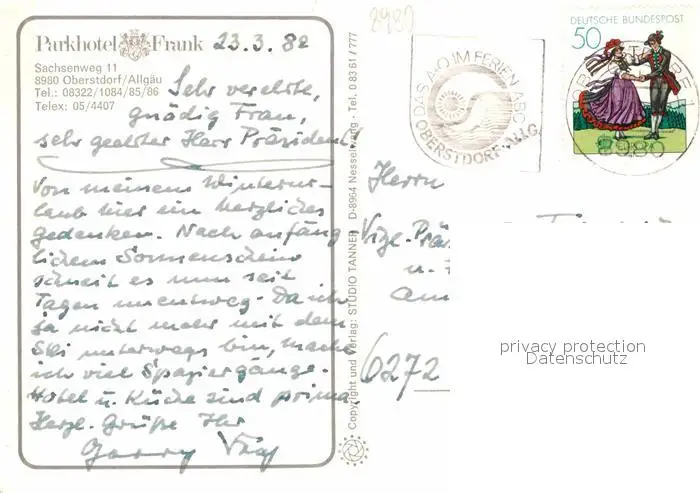 Parkhotel Frank 23.3.82
Sachsenweg 11
8980 Oberstdorf/Allgäu
Tel.: 08322/1084/85/86
Telex: 05/4407
Sehr verehrte,
gnädig Frau,
sehr geehrter Herr Präsident!
Von meinem Winterur-
laub hier ein herzliches
gedenken. Nach anfäng
lichem Sonnenschein
schneit es nun seit
Tagen unentwegt. Da ich
ja nicht mehr mit dem
Ski unterwegs bin, mache
ich viel Spaziergänge.
Hotel u. Küche sind prima.
Herzl. Grüße Ihr
Copyright und Verlag: STUDIO TANNER D-8964 Nesselwang - Tel. 0 83 61 / 777
DAS A-O IM FERIEN-ABC
OBERSTDORF/ALLG.
DEUTSCHE BUNDESPOST
50
8980
Herrn
Vize-Präs
u.
am
6272
privacy protection
Datenschutz